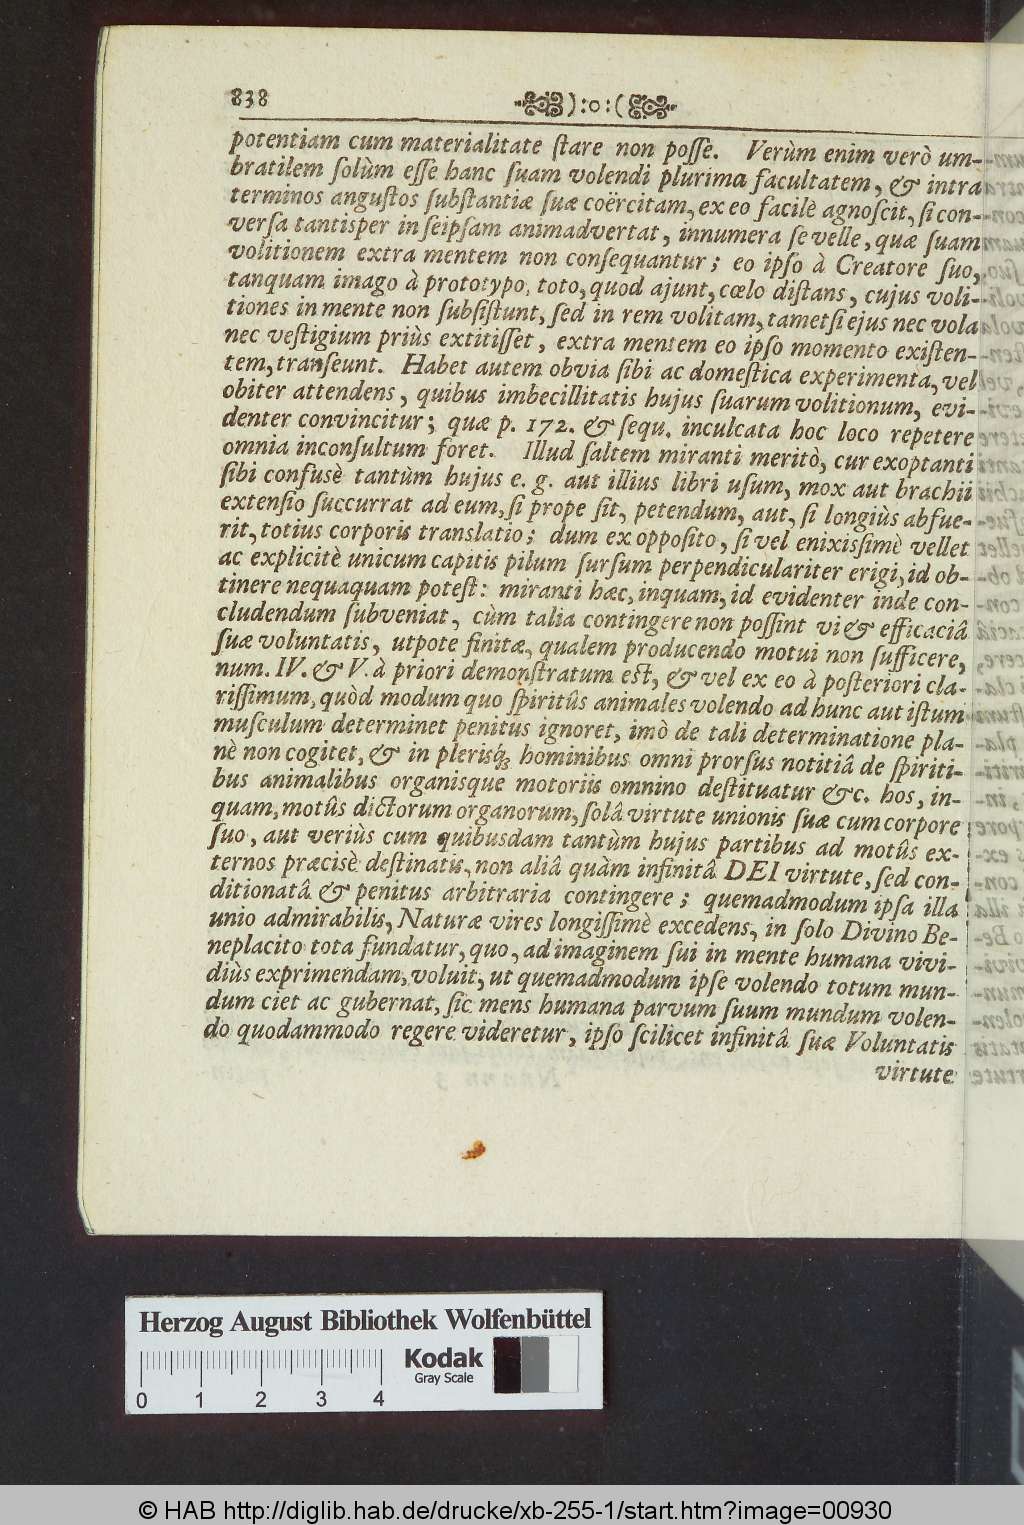 838 ):o:(
potentiam cum materialitate ſtare non poſſe. Verùm enim verò um-
bratilem ſolùm eſſe hanc ſuam volendi plurima facultatem, & intra
terminos anguſtos ſubſtantiæ ſuæ coërcitam, ex eo facilè agnoſcit, ſi con-
verſa tantisper in ſeipſam animadvertat, innumera ſe velle, quæ ſuam
volitionem extra mentem non conſequantur; eo ipſo à Creatore ſuo,
tanquam imago à prototypo, toto, quod ajunt, cœlo diſtans, cujus voli-
tiones in mente non ſubſiſtunt, ſed in rem volitam, tametſi ejus nec vola
nec veſtigium priùs extitiſſet, extra mentem eo ipſo momento exiſten-
tem, tranſeunt. Habet autem obvia ſibi ac domeſtica experimenta, vel
obiter attendens, quibus imbecillitatis hujus ſuarum volitionum, evi-
denter convincitur; quæ p. 172. & ſequ. inculcata hoc loco repetere
omnia inconſultum foret. Illud ſaltem miranti meritò, cur exoptanti
ſibi confusè tantùm hujus e. g. aut illius libri uſum, mox aut brachii
extenſio ſuccurrat ad eum, ſi prope ſit, petendum, aut, ſi longiùs abfue-
rit, totius corporis translatio; dum ex oppoſito, ſi vel enixiſſimè vellet
ac explicitè unicum capitis pilum ſurſum perpendiculariter erigi, id ob-
tinere nequaquam poteſt: miranti hæc, inquam, id evidenter inde con-
cludendum ſubveniat, cùm talia contingere non poſſint vi & efficaciâ
ſuæ voluntatis, utpote finitæ, qualem producendo motui non ſufficere,
num. IV. & V. à priori demonſtratum eſt, & vel ex eo à poſteriori cla-
riſſimum, quòd modum quo ſpiritûs animales volendo ad hunc aut iſtum
muſculum determinet penitus ignoret, imò de tali determinatione pla-
nè non cogitet, & in plerisq; hominibus omni prorſus notitiâ de ſpiriti-
bus animalibus organisque motoriis omnino deſtituatur &c. hos, in-
quam, motûs dictorum organorum, ſolâ virtute unionis ſuæ cum corpore
ſuo, aut veriùs cum quibusdam tantùm hujus partibus ad motûs ex-
ternos præcisè deſtinatis, non aliâ quàm infinitâ DEI virtute, ſed con-
ditionatâ & penitus arbitraria contingere; quemadmodum ipſa illa
unio admirabilis, Naturæ vires longiſſimè excedens, in ſolo Divino Be-
neplacito tota fundatur, quo, ad imaginem ſui in mente humana vivi-
diùs exprimendam, voluit, ut quemadmodum ipſe volendo totum mun-
dum ciet ac gubernat, ſic mens humana parvum ſuum mundum volen-
do quodammodo regere videretur, ipſo ſcilicet infinitâ ſuæ Voluntatis
virtute
Herzog August Bibliothek Wolfenbüttel
Kodak
Gray Scale
0 1 2 3 4
© HAB http://diglib.hab.de/drucke/xb-255-1/start.htm?image=00930